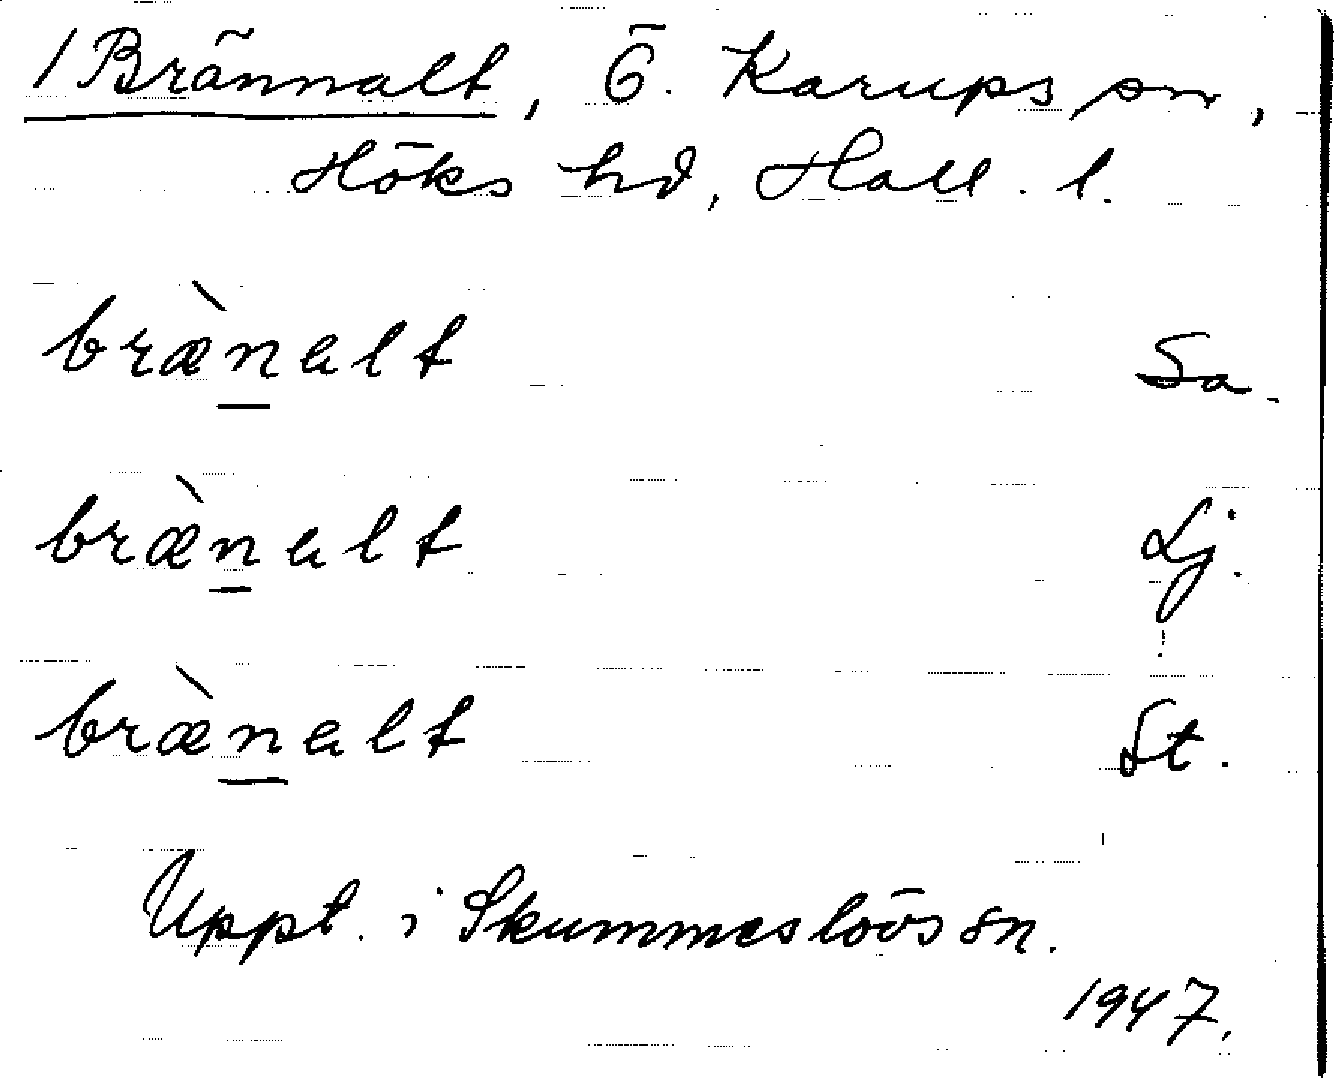 /Brännalt, Ö. Karups sn,
Höks hd, Hall. l.
bræ̀n̲alt Sa.
bræ̀n̲alt Lj.
bræ̀n̲alt St.
Uppt. i Skummeslövs sn.
1947.